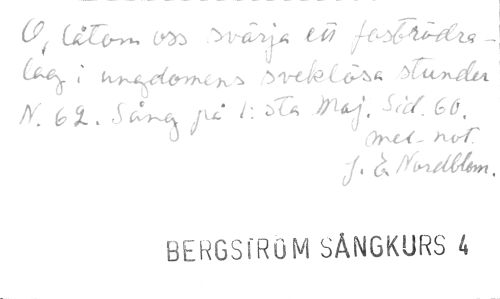 O, låtom oss svärja ett fostbrödra-
lag i ungdomens sveklösa stunder
N. 62. Sång på 1:sta Maj. Sid. 60.
med not.
J. E. Nordblom.
BERGSTRÖM SÅNGKURS 4